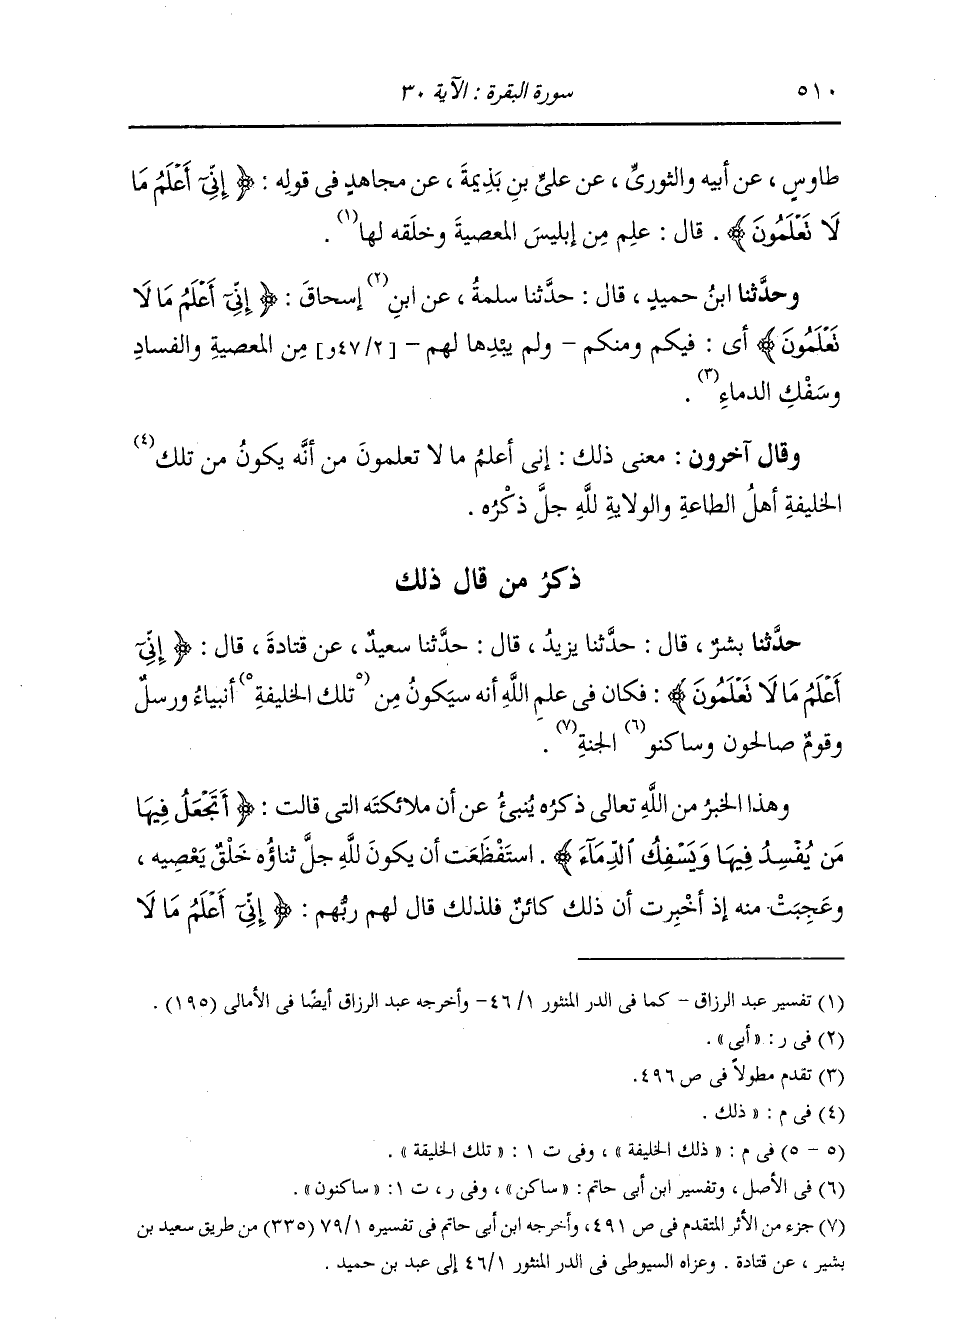 ٥١٠ سورة البقرة : الآية ٣٠
طاوسٍ ، عن أبيه والثوريِّ ، عن عليِّ بنِ بَذِيمةَ ، عن مجاهدٍ فى قولِه : ﴿ إِنِّىٓ أَعْلَمُ مَا
لَا تَعْلَمُونَ ﴾ . قال : علِم مِن إبليسَ المعصيةَ وخلَقه لها(١) .
وحدَّثنا ابنُ حميدٍ ، قال : حدَّثنا سلمةُ ، عن ابنِ(٢) إسحاقَ : ﴿ إِنِّىٓ أَعْلَمُ مَا لَا
تَعْلَمُونَ ﴾ أى : فيكم ومنكم - ولم يبْدِها لهم - [٤٧/٢و] مِن المعصيةِ والفسادِ
وسَفْكِ الدماءِ(٣) .
وقال آخرون : معنى ذلك : إنى أعلمُ ما لا تعلمونَ من أنَّه يكونُ من تلك(٤)
الخليفةِ أهلُ الطاعةِ والولايةِ للَّهِ جلَّ ذكْرُه .
ذكرُ من قال ذلك
حدَّثنا بشرٌ ، قال : حدَّثنا يزيدُ ، قال : حدَّثنا سعيدٌ ، عن قتادةَ ، قال : ﴿ إِنِّىٓ
أَعْلَمُ مَا لَا تَعْلَمُونَ ﴾ : فكان فى علمِ اللَّهِ أنه سيَكونُ مِن (٥تلك الخليفةِ٥) أنبياءُ ورسلٌ
وقومٌ صالحون وساكنو(٦) الجنةِ(٧) .
وهذا الخبرُ من اللَّهِ تعالى ذكرُه يُنبئُ عن أن ملائكتَه التى قالت : ﴿ أَتَجْعَلُ فِيهَا
مَن يُفْسِدُ فِيهَا وَيَسْفِكُ ٱلدِّمَآءَ ﴾ . استَفْظَعَت أن يكونَ للَّهِ جلَّ ثناؤُه خَلْقٌ يَعْصِيه ،
وعَجِبَتْ منه إذ أخْبِرت أن ذلك كائنٌ فلذلك قال لهم ربُّهم : ﴿ إِنِّىٓ أَعْلَمُ مَا لَا
(١) تفسير عبد الرزاق - كما فى الدر المنثور ٤٦/١ - وأخرجه عبد الرزاق أيضًا فى الأمالى (١٩٥) .
(٢) فى ر : «أبى» .
(٣) تقدم مطولاً فى ص ٤٩٦.
(٤) فى م : « ذلك .
(٥ - ٥) فى م : « ذلك الخليفة » ، وفى ت ١ : « تلك الخليقة » .
(٦) فى الأصل ، وتفسير ابن أبى حاتم : «ساكن» ، وفى ر ، ت ١: «ساكنون» .
(٧) جزء من الأثر المتقدم فى ص ٤٩١، وأخرجه ابن أبى حاتم فى تفسيره ٧٩/١ (٣٣٥) من طريق سعيد بن
بشير ، عن قتادة . وعزاه السيوطى فى الدر المنثور ٤٦/١ إلى عبد بن حميد .